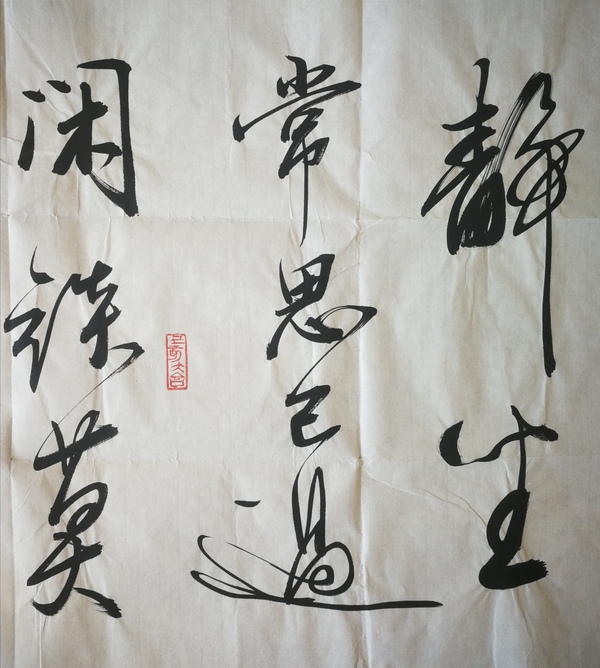 静坐
常思己过
闲谈莫